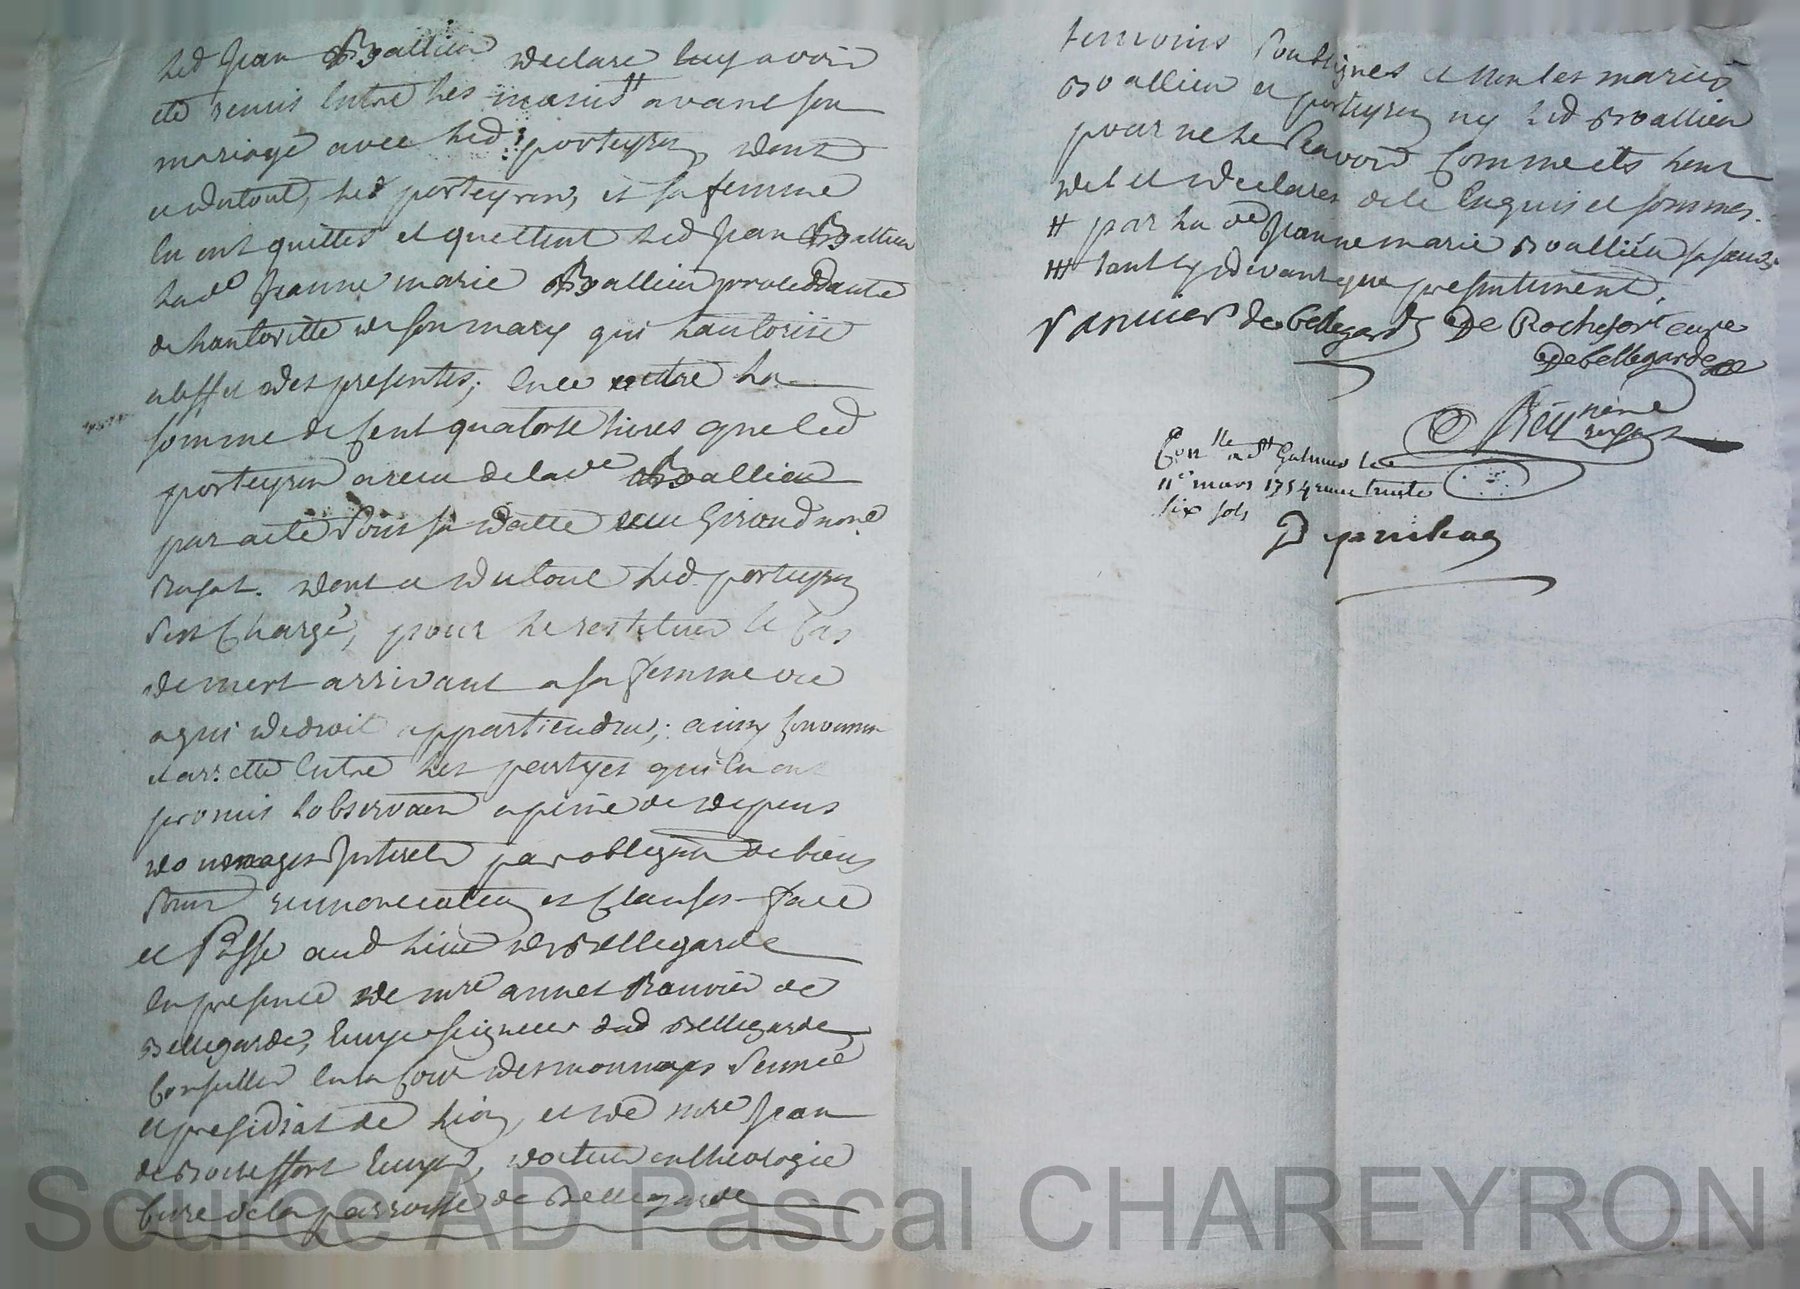 led Jean Boallieu declare luy avoir
eté remis entre les mains # avant son
mariage avec led porteyron, dont
et du tout, led porteyron, et sa femme
en ont quitté et quettent led Jean Boallieu
lad^e Jeanne marie Boallieu proceddante
de lautoritté de son mary qui lautorise
a leffet des presentes; en ce outre la
somme de cent quatorse livres que led
porteyron a reçu de lad^e Boallieu
par acte sous sa datte reçu Giroud no^re
royal. dont et du tout led porteyron
sest chargé, pour le restituer le cas
de mort arrivant a sa femme ou
a qui de droit appartiendra; ainsy convenu
et arretté entre les partyes qui en ont
promis lobserver a peine de depens
domages interets par obligon de biens
sous renonciation et clauses fait
et Passé aud lieu de Bellegarde
en presence de m^re annet Ranvier de
Bellegarde, Ecuyer seigneur dud Bellegarde
Conseiller en la Cour des monnoyes senné
et presidial de Lion, et de m^re Jean
de Rocheffort Ecuyer, docteur en theologie
Curé de la parroisse de Bellegarde
temoins soussignés et non les mariés
Boallieu et porteyron ny led Boallieu
pour ne le scavoir comme ils lont
dit et declaré de ce enquis et sommés.
# par la d^e Jeanne marie Boallieu
## tant cydevant que presentement.
ranvier de bellegarde De Rochefort curé
de bellegarde
Rey
Con^lle a S^t Galmier le
11^e mars 1754 reçu trente
six sols